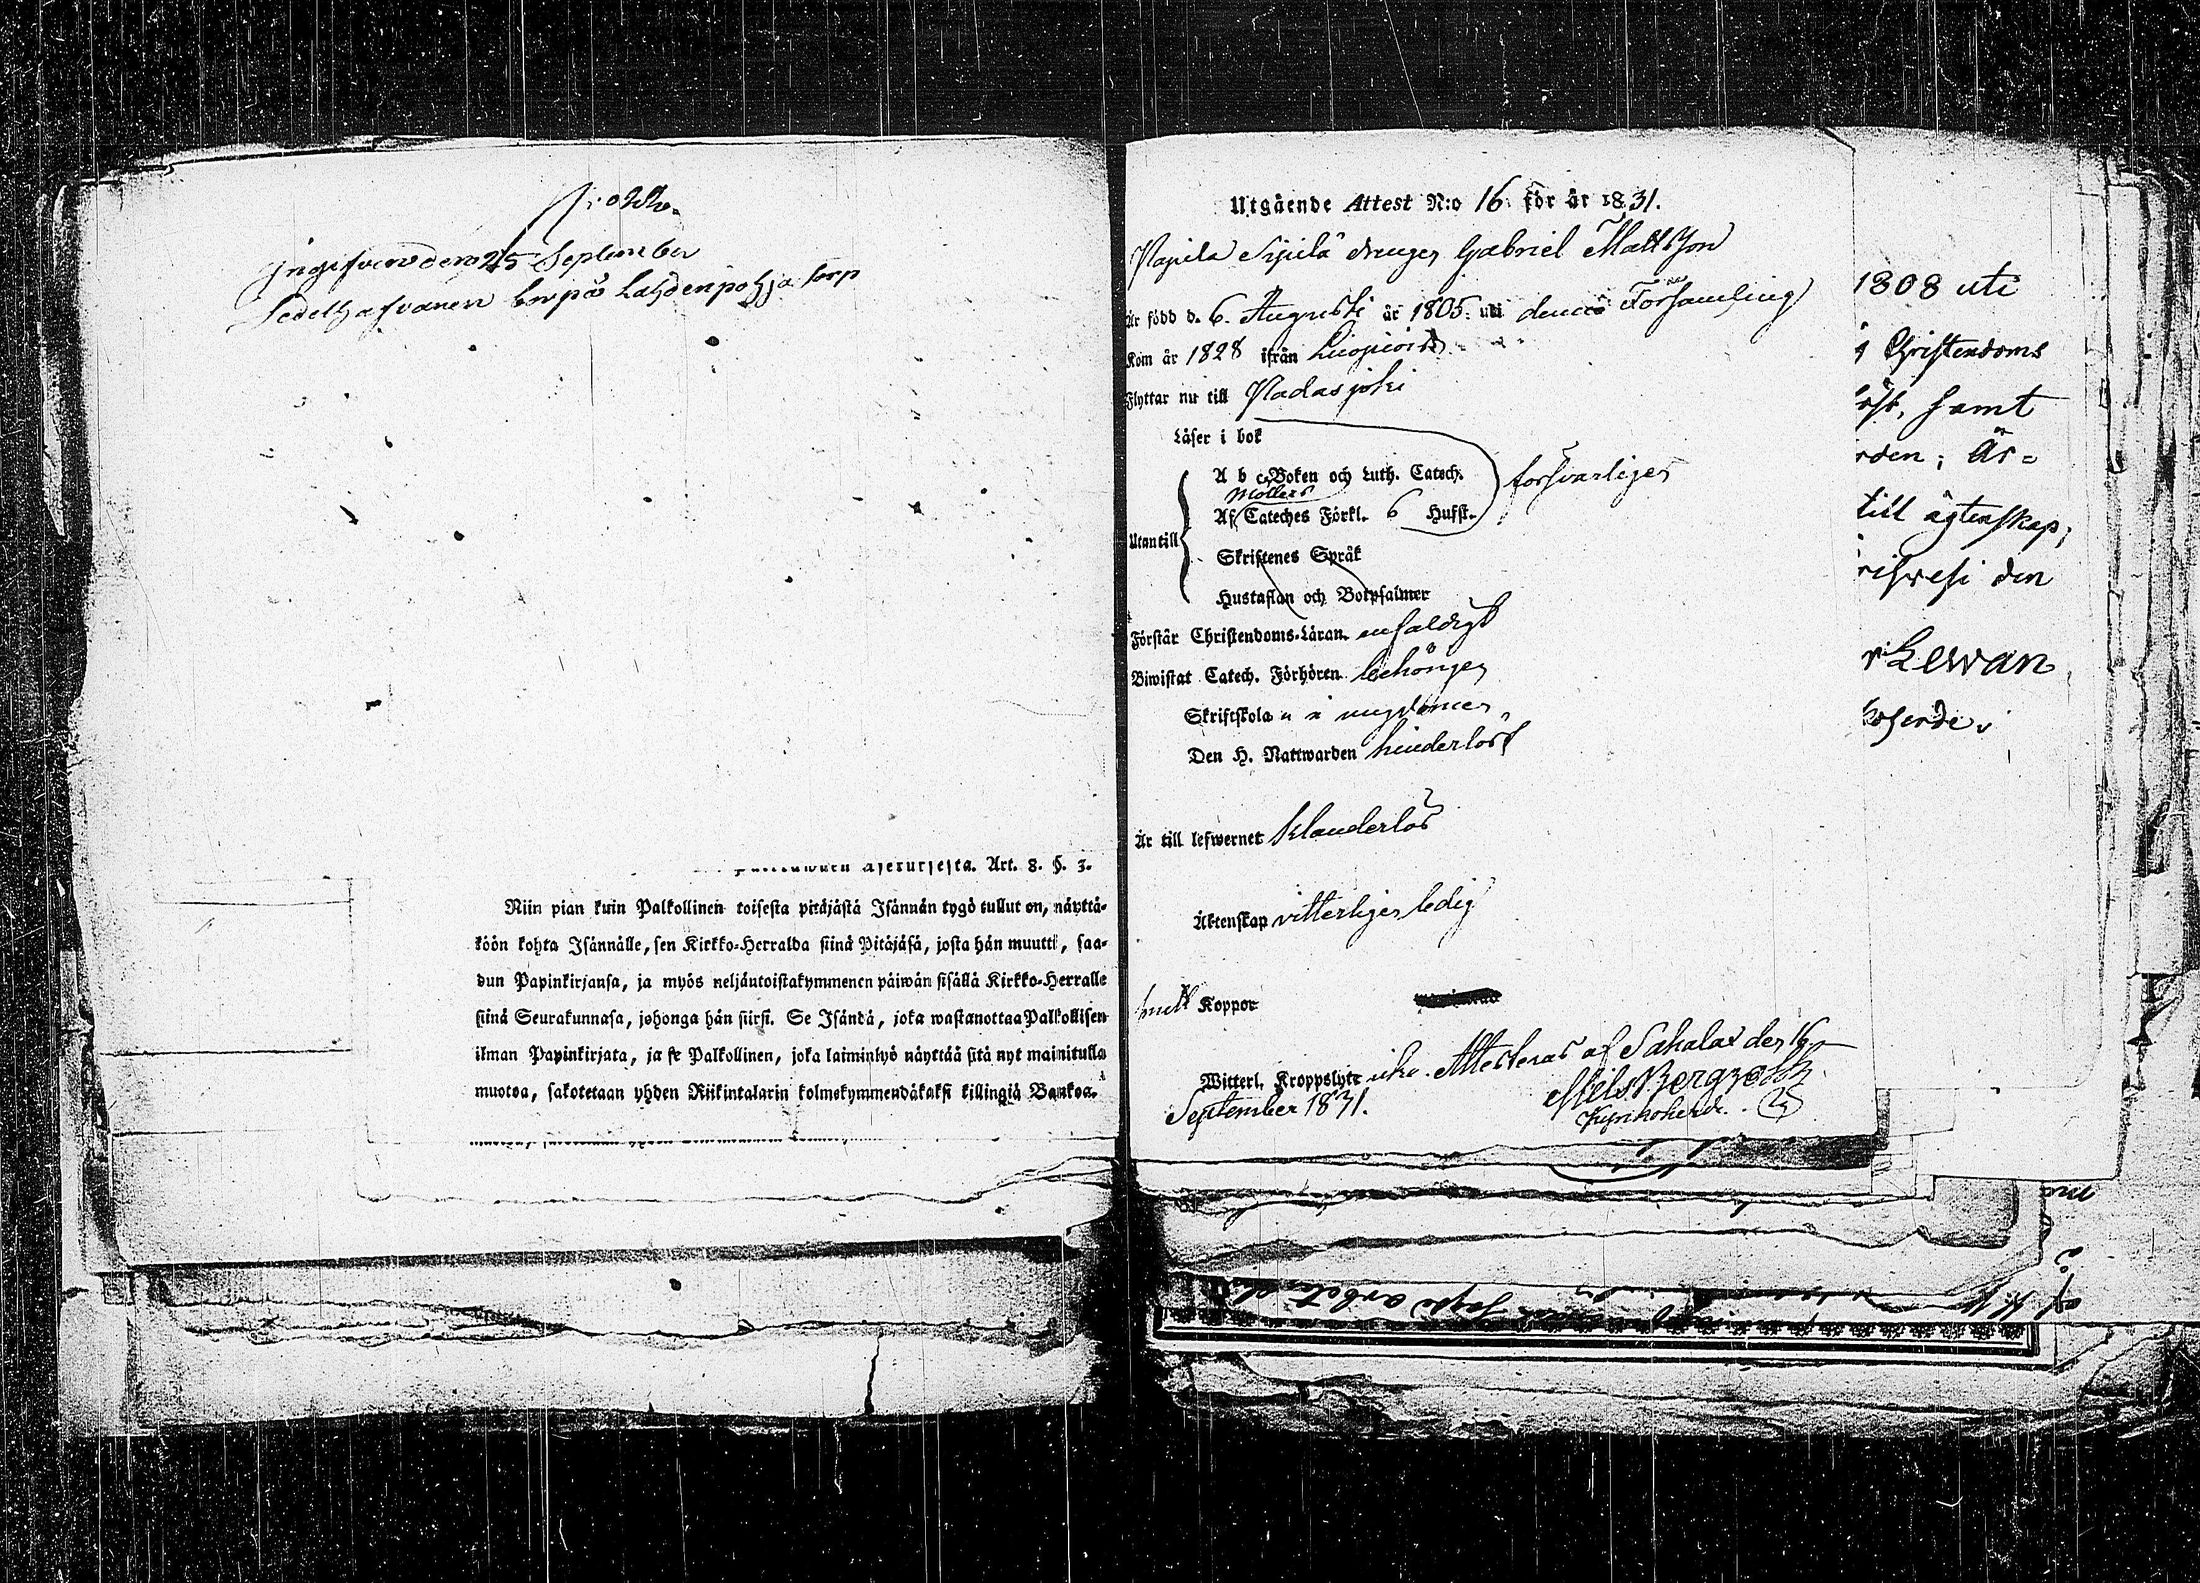 Ingifven den 25 September
Sedelhafvaren bor på Lahdenpohja torp
Art. 8. §. 3.
Niin pian kuin Palkollinen toisesta pitäjästä Isännän tygö tullut on, näyttä-
köön kohta Isännälle, sen Kirkko-Herralda siinä Pitäjäsä, josta hän muutti, saa-
dun Papinkirjansa, ja myös neljäntoistakymmenen päiwän sisällä Kirkko-Herralle
siinä Seurakunnasa, johonga hän siirsi. Se Isändä, joka wastanottaa Palkollisen
ilman Papinkirjata, ja se Palkollinen, joka laiminlyö näyttää sitä nyt mainitulla
muotoa, sakotetaan yhden Riikintalarin kolmekymmendäkaksi killingiä Bankoa.
Utgående Attest N:o 16 för år 1831.
Sipilä drengen Gabriel Mattsson
Är född d. 6. Augusti år 1805. uti denna Församling
Kom år 1828 ifrån
Flyttar nu till Padasjoki
Läser i bok
A b c-Boken och Luth. Catech.
Möllers
Af Cateches Förkl. 6 Hufst.
försvarligen
Utantill
Skriftenes Språk
Hustaflan och Botpsalmer
Förstår Christendoms-Läran enfaldigt
Biwistat Catech. Förhören behörigen
Skriftskola i ungdomen
Den H. Nattwarden hinderlöst
Är till lefwernet klanderlös
Äktenskap vitterligen ledig
haft Koppor
Witterl. Kroppslyte icke. Attesteras af Sahalax den 16
September 1831.
Nils Bergroth
Kyrkoherde.
1808 uti
Christendoms
samt
till ägtenskap;
den
Lewan